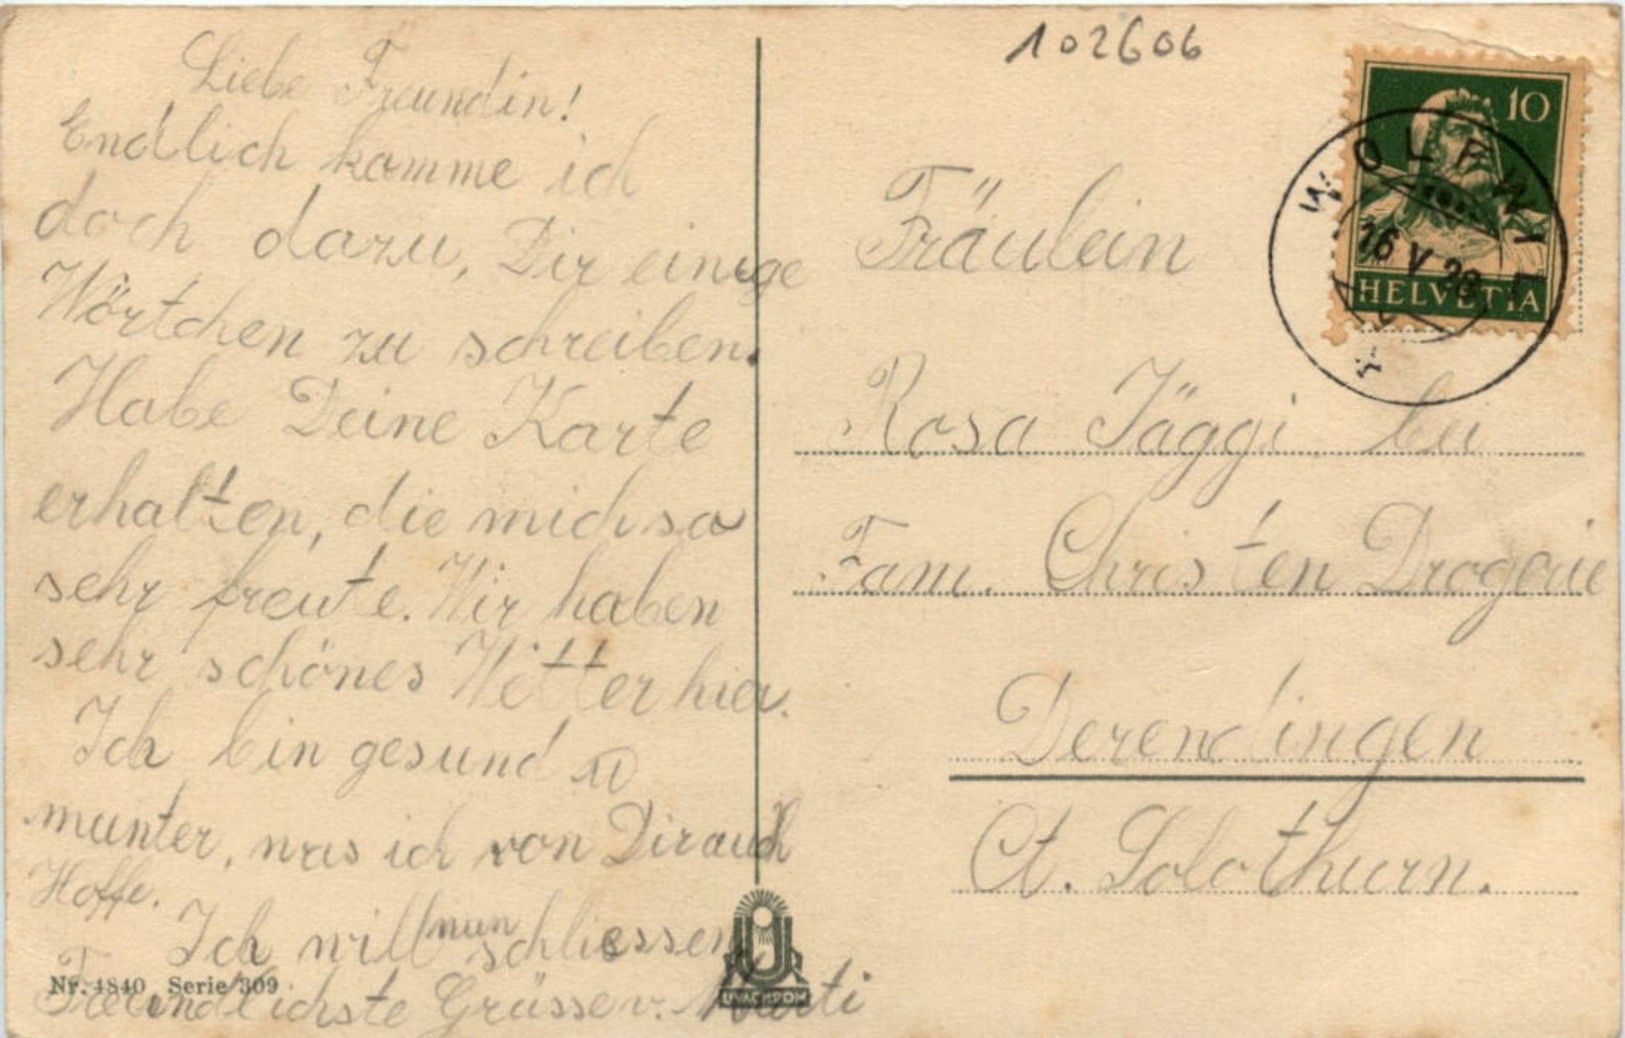 Liebe Freundin!
Endlich komme ich
doch dazu, Dir einige
Wörtchen zu schreiben.
Habe Deine Karte
erhalten, die mich so
sehr freute. Wir haben
sehr schönes Wetter hier.
Ich bin gesund u
munter, was ich von Dir auch
Hoffe.
Ich will nun schliessen
Freundlichste Grüsse v.
Nr. 4840 Serie 309
UVACHROM
102606
10
HELVETIA
WOLFWIL
16 V 28
Fräulein
Rosa Jäggi bei
Fam. Christen Drogerie
Derendingen
Ct. Solothurn.